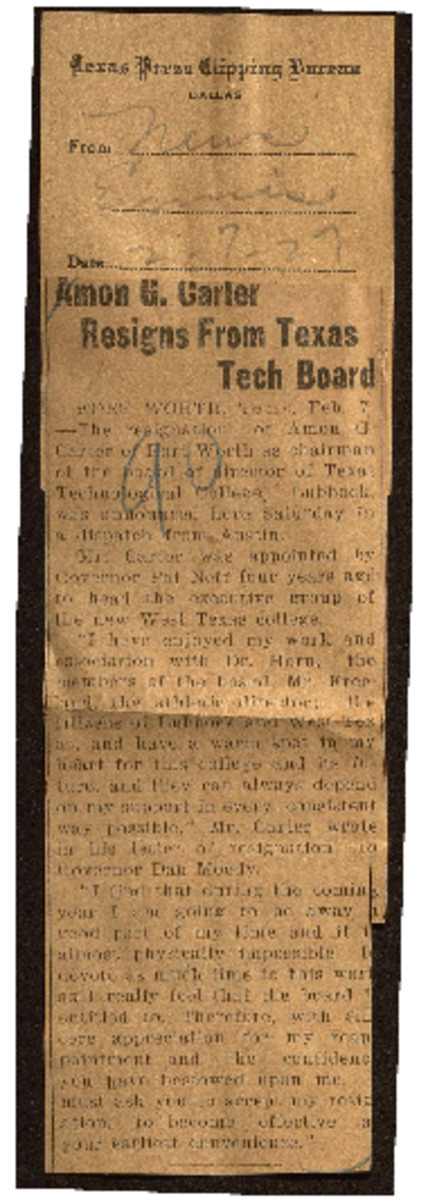 Texas Press Clipping Bureau
DALLAS
From News
Ennis
Date 2-7-27
Amon G. Carter
Resigns From Texas
Tech Board
FORT WORTH, Texas, Feb. 7
—The resignation of Amon G
Carter of Fort Worth as chairman
of the board of director of Texas
Technological College, Lubbock,
was announced here Saturday in
a dispatch from Austin.
Mr. Carter was appointed by
Governor Pat Neff four years ago
to head the executive group of
the new West Texas college.
"I have enjoyed my work and
association with Dr. Horn, the
members of the board, Mr. Free-
land, the athletic director; the
citizens of Lubbock and West Tex
as, and have a warm spot in my
heart for this college and its fu-
ture, and they can always depend
on my support in every consistent
way possible," Mr. Carter wrote
in his letter of resignation to
Governor Dan Moody.
"I find that during the coming
year I am going to be away a
good part of my time and it i
almost physically impossible t
devote as much time to this work
as I really feel that the board i
entitled to. Therefore, with sin
cere appreciation for my reap
pointment and the confidenc
you have bestowed upon me,
must ask you to accept my resig
ation, to become effective a
your earliest convenience."